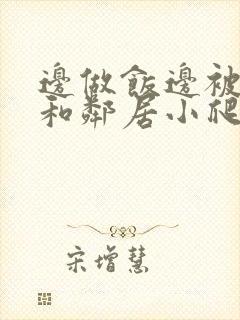 邊做飯邊被
和鄰居小爬
宋增慧